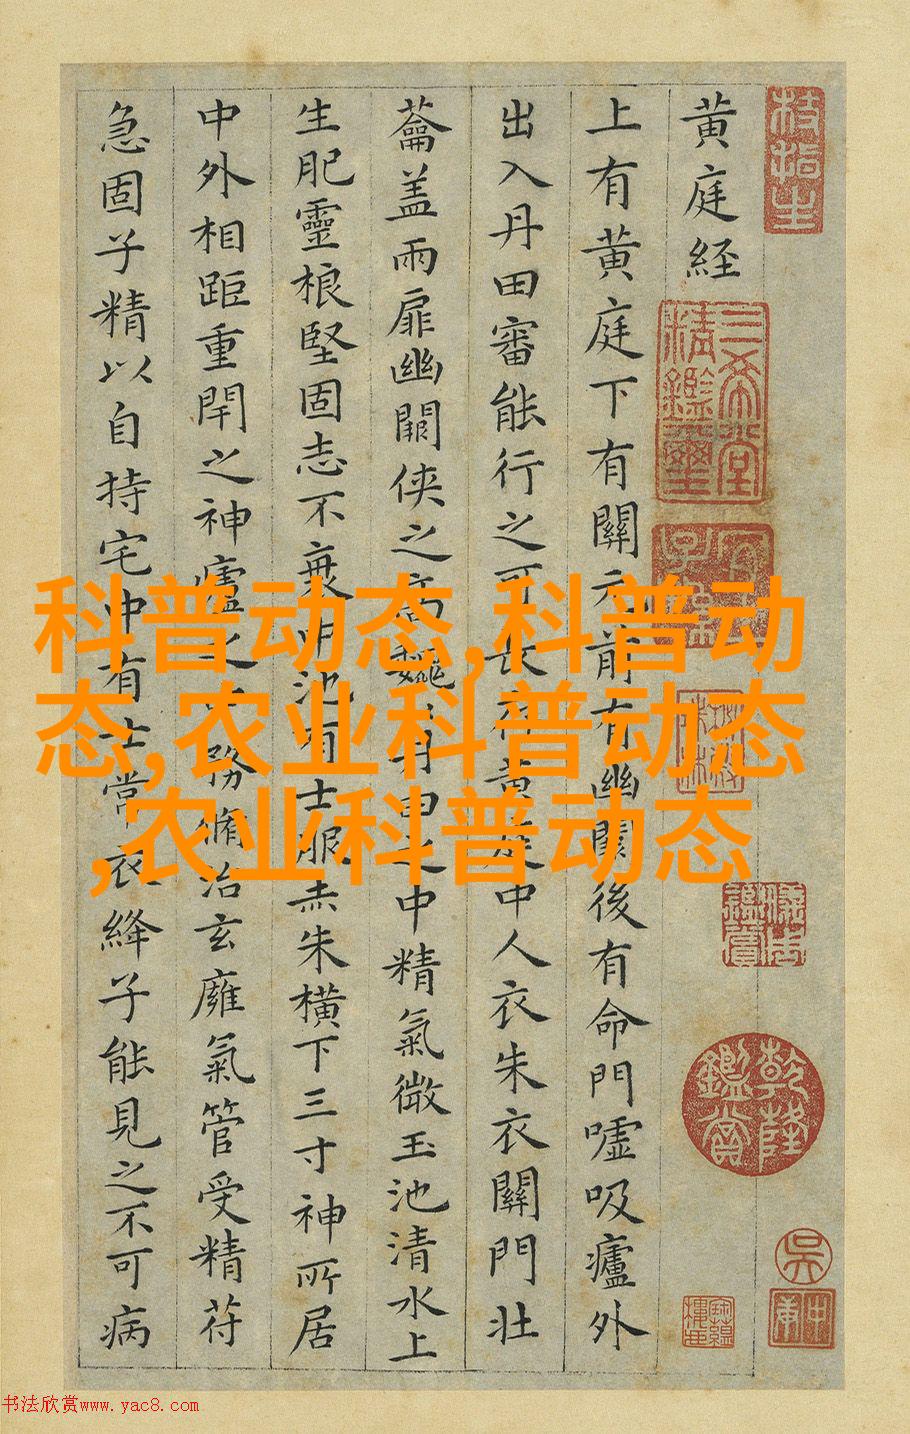 枝指生
黄庭経
三希堂精鑑璽
宜子孫
乾隆鑑賞
吳
上有黄庭下有關元前有幽闕後有命門噓吸廬外
出入丹田審能行之可長存黄庭中人衣朱衣關門壮
蘥盖兩扉幽闕侠之高巍巍丹田之中精氣微玉池清水上
生肥靈根堅固志不衰中池有士服赤朱横下三寸神所居
中外相距重閇之神廬之中務脩治玄廱氣管受精苻
急固子精以自持宅中有士常衣絳子能見之不可病
科普动态,科普动
态,农业科普动态
,农业科普动态
书法欣赏www.yac8.com